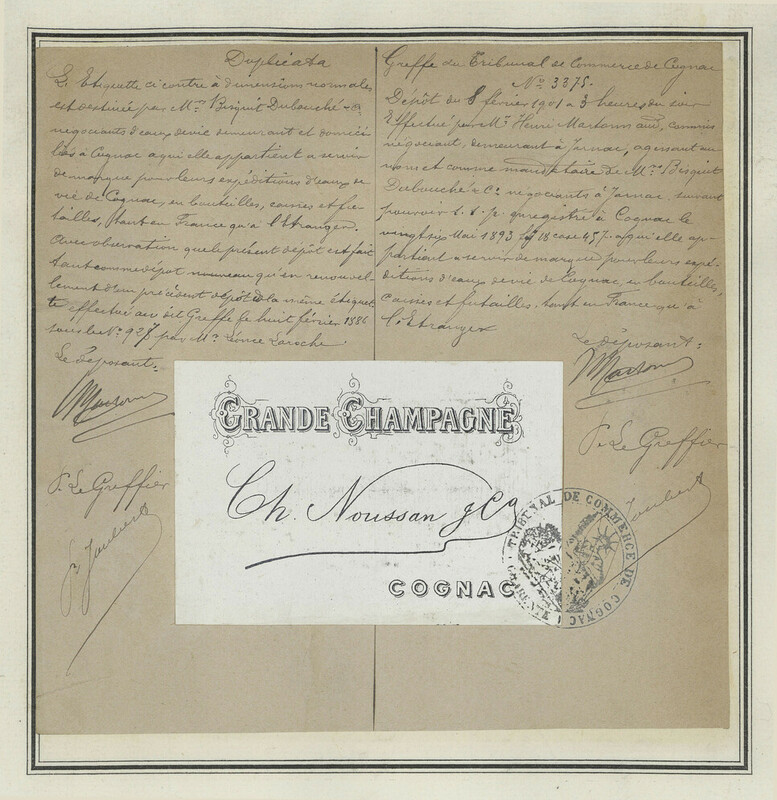 Duplicata
L'Etiquette ci contre à dimensions normales
est destinée par Mrs Bisquit Dubouché & Co
négociants d'eaux devie demeurant et domici-
liés à Cognac a qui elle appartient a servir
de marque pour leurs expéditions d'eaux de
vie de Cognac, en bouteilles, caisses et fu-
tailles, tant en France qu'à l'Etranger.
Avec observation que le présent dépôt est fait
tant comme dépôt nouveau qu'en renouvel-
lement d'un précédent dépôt de la même étiquet-
te effectué au dit Greffe le huit février 1886
sous le No 927 par Mr Léonce Laroche.
Le déposant:
Martom
P. Le Greffier
P. Joubert
Greffe du Tribunal de Commerce de Cognac
No 3375.
Dépôt du 8 février 1901 à 3 heures du soir
Effectué par Mr Henri commis
négociant, demeurant à Jarnac, agissant au
nom et comme mandataire de Mrs Bisquit
Dubouché & Co négociants à Jarnac, suivant
pouvoir s. s. p. enregistré à Cognac le
vingt six Mai 1893 fo 18 case 457. A qui elle ap-
partient a servir de marque pour leurs expé-
ditions d'eaux devie de Cognac, en bouteilles,
caisses et futailles, tant en France qu'à
l'Etranger
Le déposant:
Martom
P. Le Greffier
Joubert
GRANDE CHAMPAGNE
Ch. Noussan & Co
COGNAC
TRIBUNAL DE COMMERCE DE COGNAC (CHARENTE)